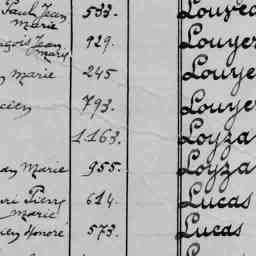 Paul Jean Marie 533. Louve
Jean Marie 929. Louyer
Marie 245 Louye
cien 793. Louye
1.163. Loyza
Marie 955. Loyza
Pierre Marie 614. Lucas
Honoré 573. Lucas